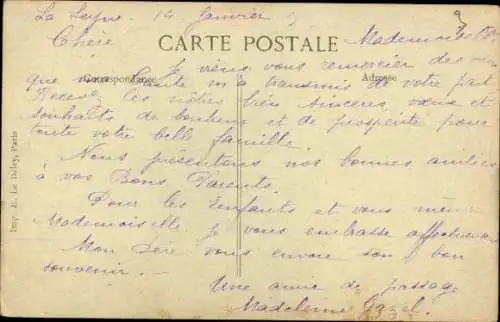 La Seyne. 14 Janvier
CARTE POSTALE
Chère Mademoiselle
Correspondance
Adresse
Je viens vous remercier des
que vous m'a transmis de votre part
Recevez les nôtres très sincères, vœux et
souhaits de bonheur et de prospérité pour
toute votre belle famille.
Nous présentons nos bonnes amitiés
à vos Bons Parents.
Pour les Enfants et vous même
Mademoiselle. Je vous embrasse affectueusement
Mon Père vous envoie son bon
souvenir. —
Une amie de passage
Madeleine
Imp. E. Le Deley, Paris